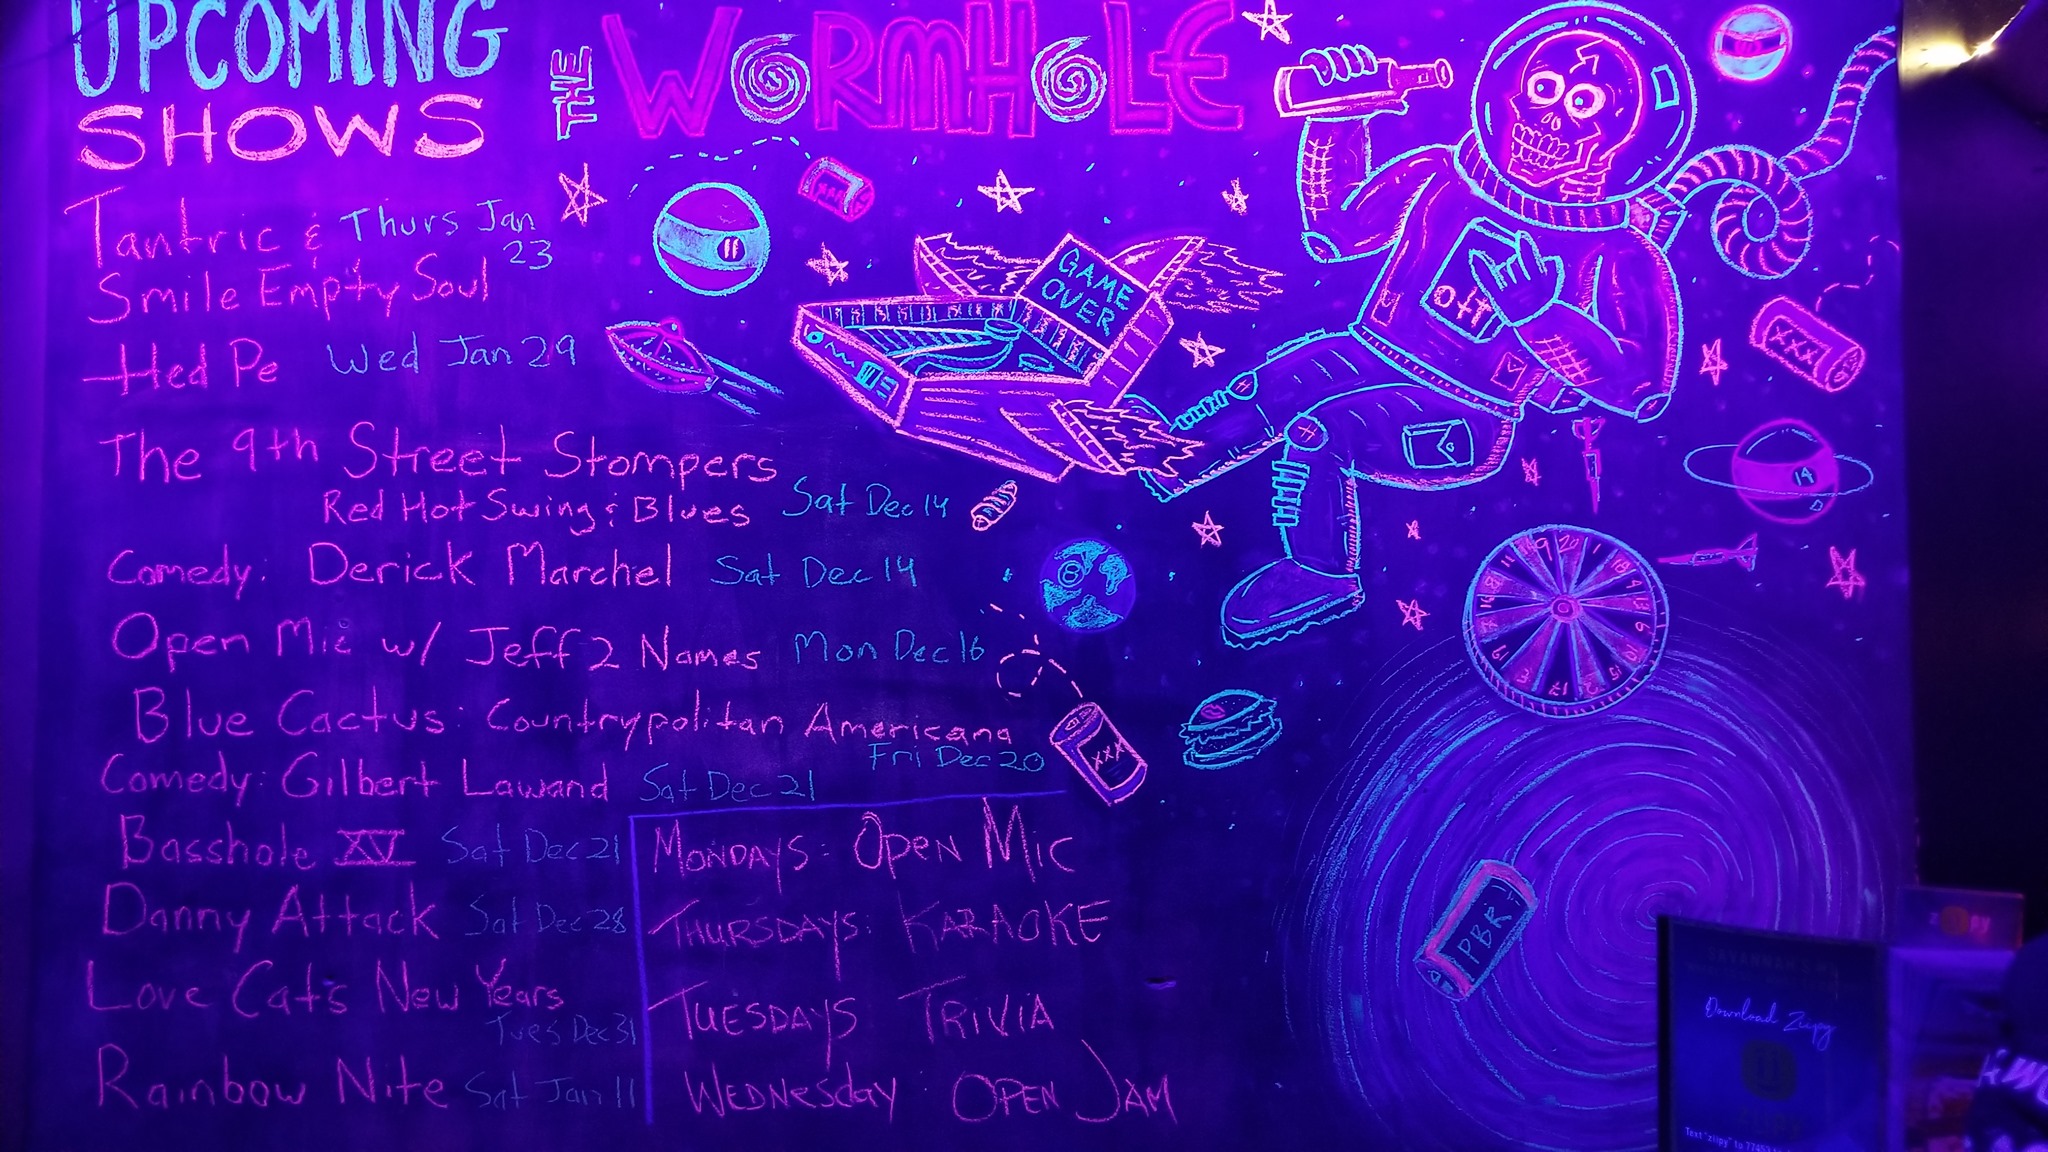 UPCOMING
SHOWS
THE WORMHOLE
Tantric & Thurs Jan
23
Smile Empty Soul
Hed Pe Wed Jan 29
The 9th Street Stompers
Red Hot Swing & Blues Sat Dec 14
Comedy: Derick Marchel Sat Dec 14
Open Mic w/ Jeff 2 Names Mon Dec 16
Blue Cactus: Countrypolitan Americana
Fri Dec 20
Comedy: Gilbert Lawand Sat Dec 21
Basshole XV Sat Dec 21
Danny Attack Sat Dec 28
Love Cat's New Years
Tues Dec 31
Rainbow Nite Sat Jan 11
MONDAYS: OPEN MIC
THURSDAYS: KARAOKE
TUESDAYS TRIVIA
WEDNESday: OPEN JAM
GAME
OVER
11
XXX
XXX
14
8
XXX
PBR
Download Ziipy